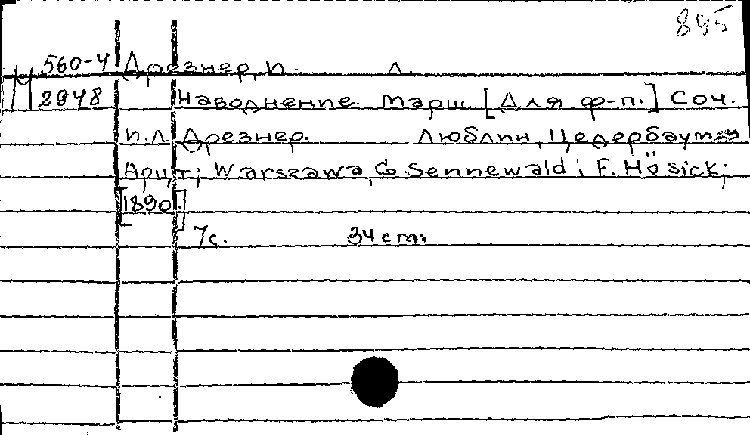 845
560-4 Дрезнер, П. Л.
М 2948 Наводнение. Марш [Для ф-п.] Соч.
П.Л. Дрезнер. Люблин, Цедербаум и
Арит; Warszawa, G. Sennewald; F. Hösick;
[1890].
7 с. 34 cm.